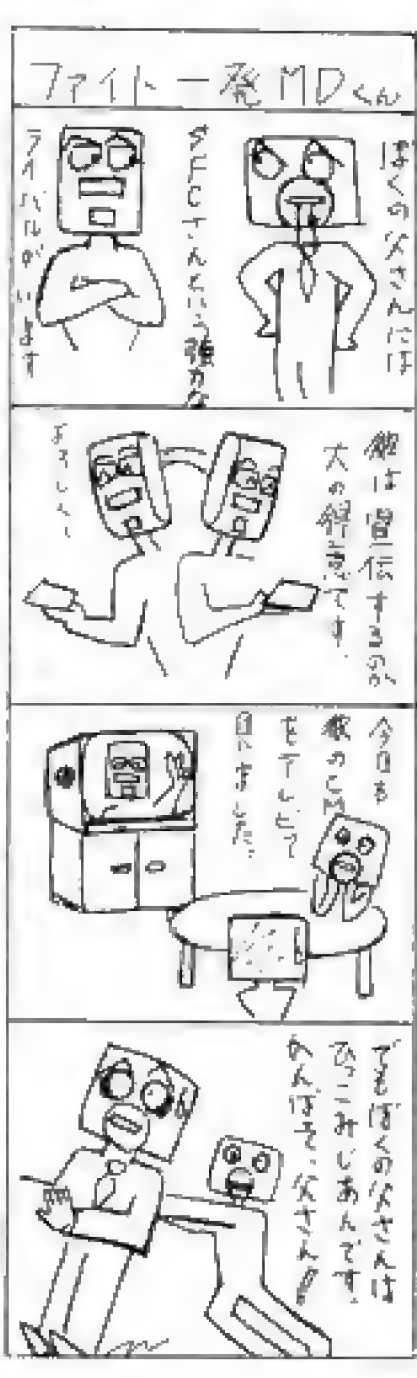 ファイト一発MDくん
ぼくの父さんには
SFCさんという強力な
ライバルがいます
彼は宣伝するのが
大の得意です.
よろしくー
今日も
彼のCM
をテレビで
目にました.
でもぼくの父さんは
ひっこみじあんです.
がんばって. 父さん!